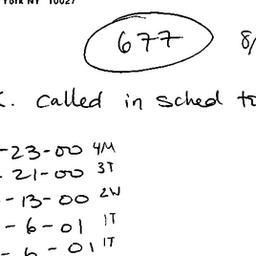 York NY 10027
677 8/
. called in sched to
-23-00 4M
-21-00 3T
-13-00 2W
-6-01 1T
-6-01 1T